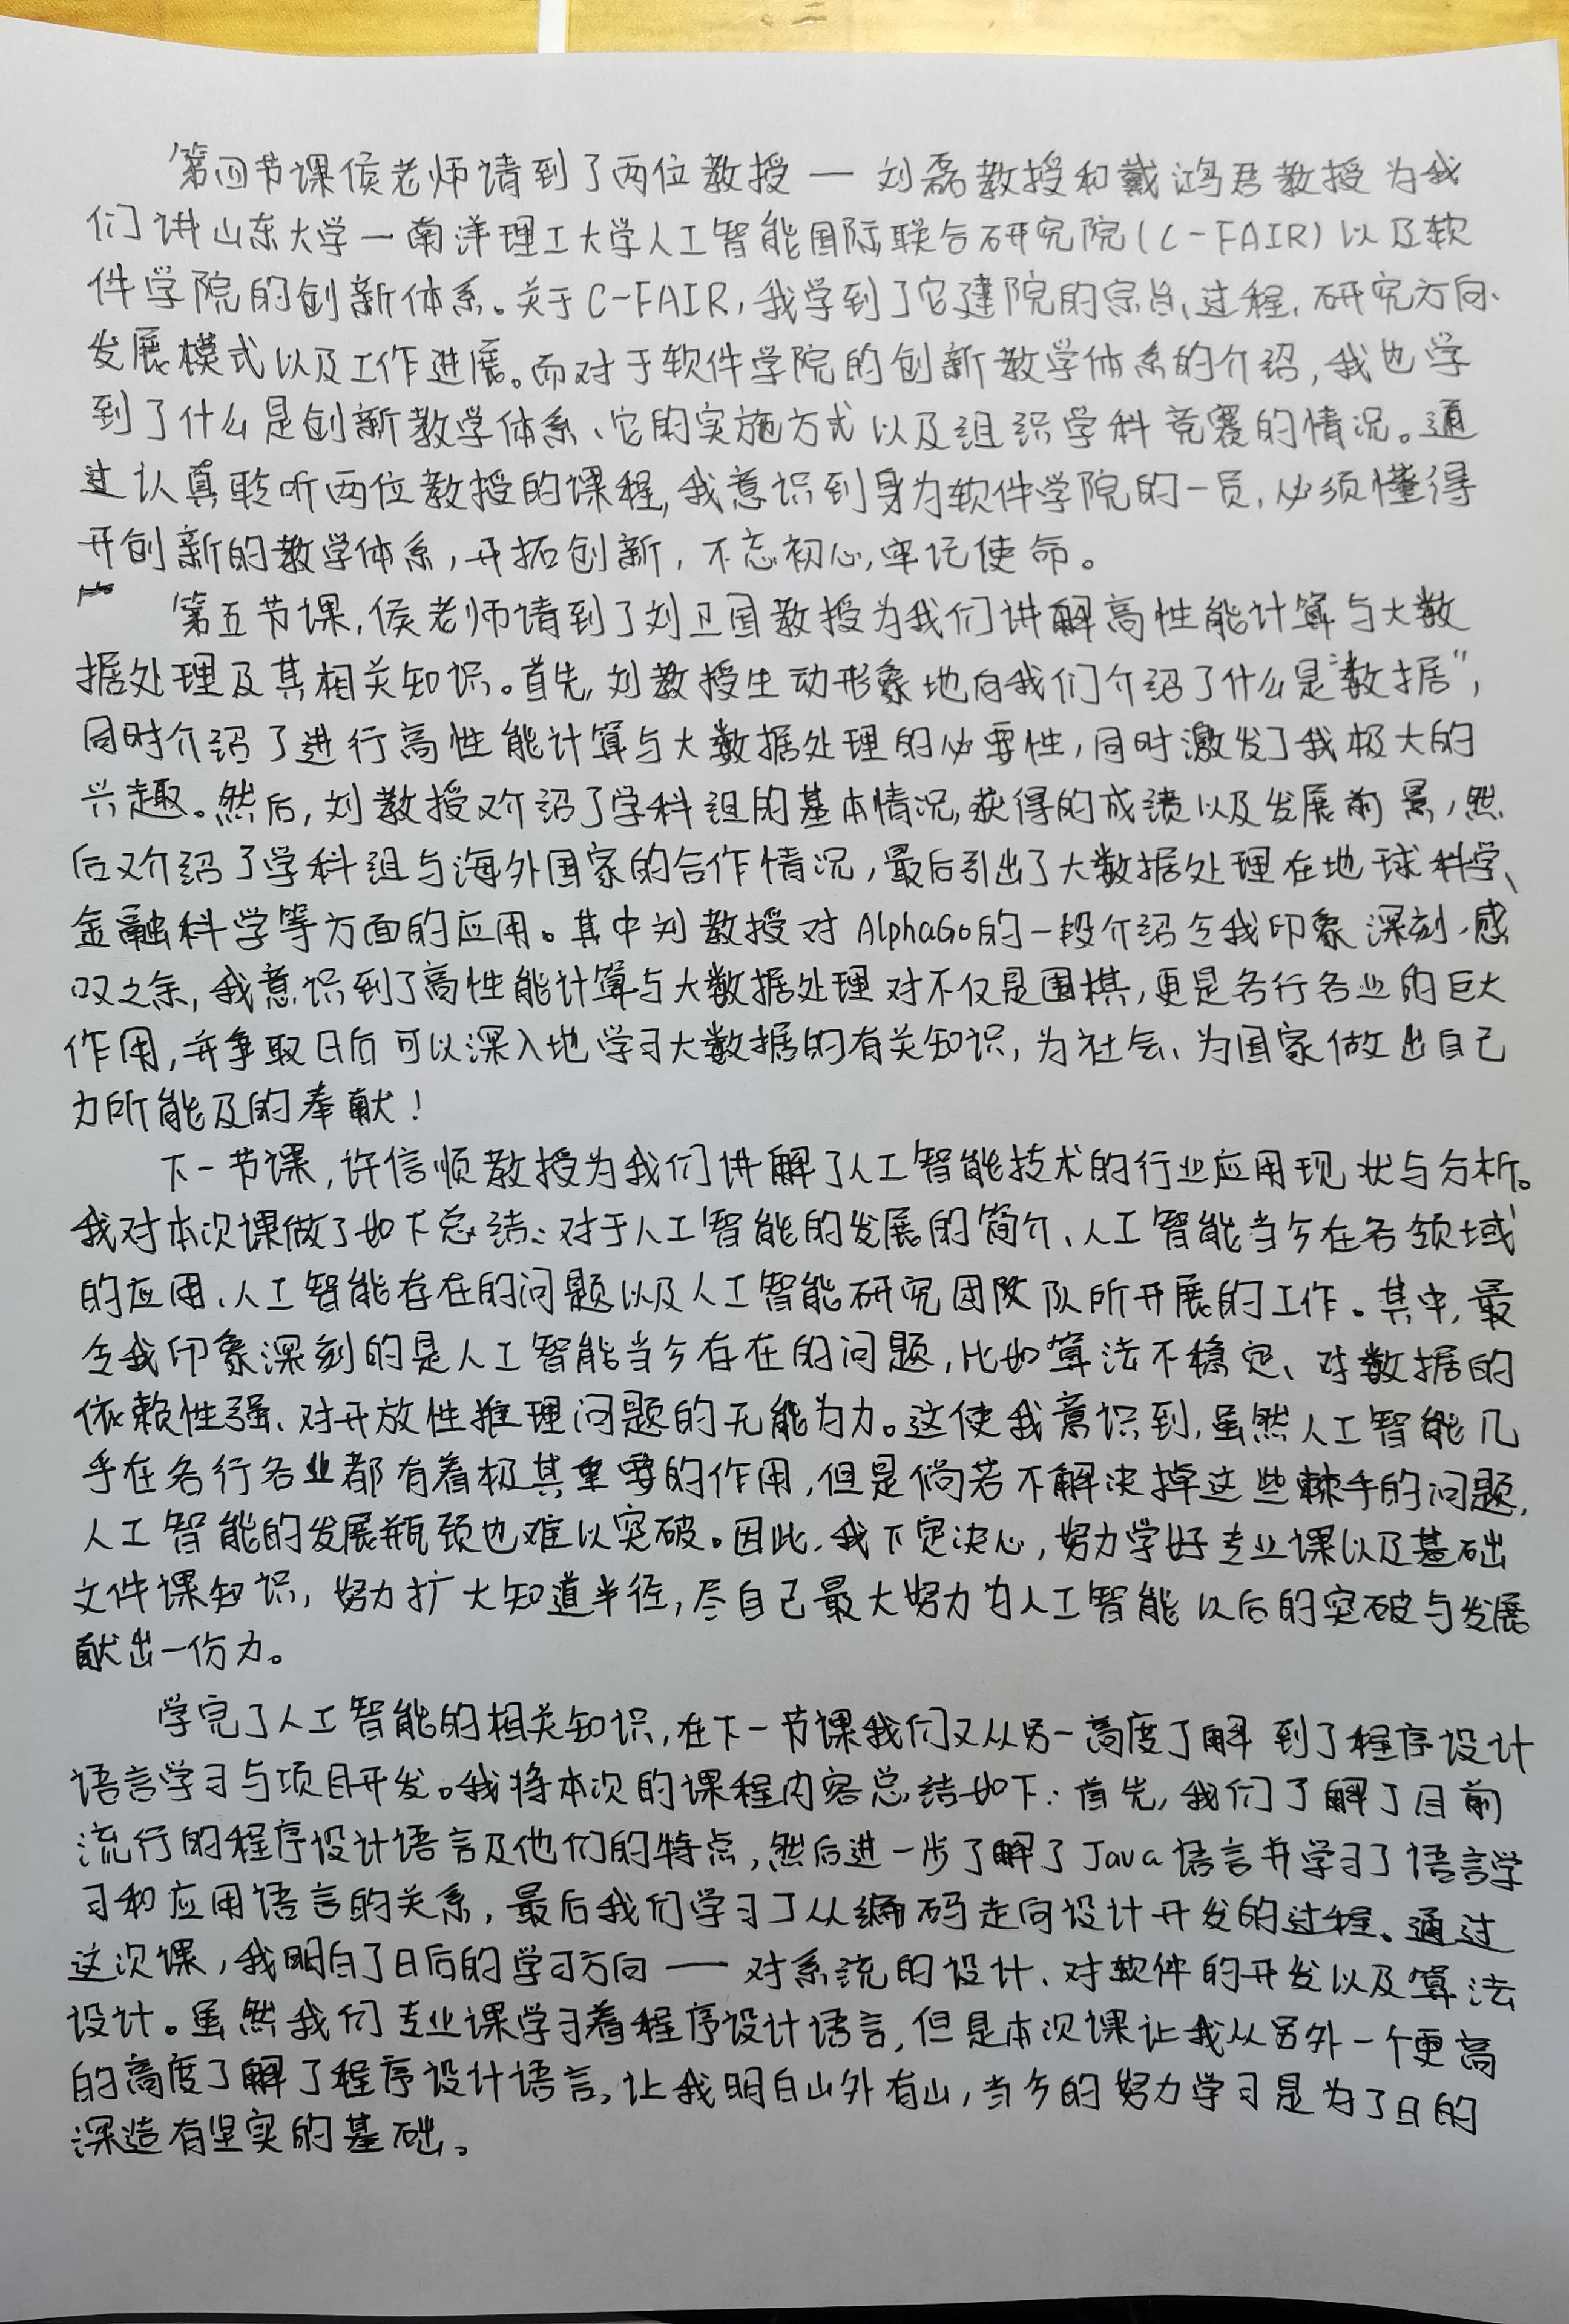 第四节课侯老师请到了两位教授—刘磊教授和戴鸿君教授为我
们讲山东大学—南洋理工大学人工智能国际联合研究院(C-FAIR)以及软
件学院的创新体系。关于C-FAIR,我学到了它建院的宗旨、过程、研究方向、
发展模式以及工作进展。而对于软件学院的创新教学体系的介绍,我也学
到了什么是创新教学体系、它的实施方式以及组织学科竞赛的情况。通
过认真聆听两位教授的课程,我意识到身为软件学院的一员,必须懂得
开创新的教学体系,开拓创新,不忘初心,牢记使命。
第五节课,侯老师请到了刘卫国教授为我们讲解高性能计算与大数
据处理及其相关知识。首先,刘教授生动形象地向我们介绍了什么是"数据",
同时介绍了进行高性能计算与大数据处理的必要性,同时激发了我极大的
兴趣。然后,刘教授又介绍了学科组的基本情况,获得的成绩以及发展前景,然
后又介绍了学科组与海外国家的合作情况,最后引出了大数据处理在地球科学、
金融科学等方面的应用。其中刘教授对AlphaGo的一段介绍令我印象深刻,感
叹之余,我意识到了高性能计算与大数据处理对不仅是围棋,更是各行各业的巨大
作用,并争取日后可以深入地学习大数据的有关知识,为社会、为国家做出自己
力所能及的奉献!
下一节课,许信顺教授为我们讲解了人工智能技术的行业应用现状与分析。
我对本次课做了如下总结:对于人工智能的发展的简介、人工智能当今在各领域
的应用、人工智能存在的问题以及人工智能研究团队所开展的工作。其中,最
令我印象深刻的是人工智能当今存在的问题,比如算法不稳定、对数据的
依赖性强、对开放性推理问题的无能为力。这使我意识到,虽然人工智能几
乎在各行各业都有着极其重要的作用,但是倘若不解决掉这些棘手的问题,
人工智能的发展瓶颈也难以突破。因此,我下定决心,努力学好专业课以及基础
文件课知识,努力扩大知道半径,尽自己最大努力为人工智能以后的突破与发展
献出一份力。
学完了人工智能的相关知识,在下一节课我们又从另一高度了解到了程序设计
语言学习与项目开发。我将本次的课程内容总结如下:首先,我们了解了目前
流行的程序设计语言及他们的特点,然后进一步了解了Java语言并学习了语言学
习和应用语言的关系,最后我们学习了从编码走向设计开发的过程。通过
这次课,我明白了日后的学习方向——对系统的设计、对软件的开发以及算法
设计。虽然我们专业课学习着程序设计语言,但是本次课让我从另外一个更高
的高度了解了程序设计语言,让我明白山外有山,当今的努力学习是为了日的
深造有坚实的基础。